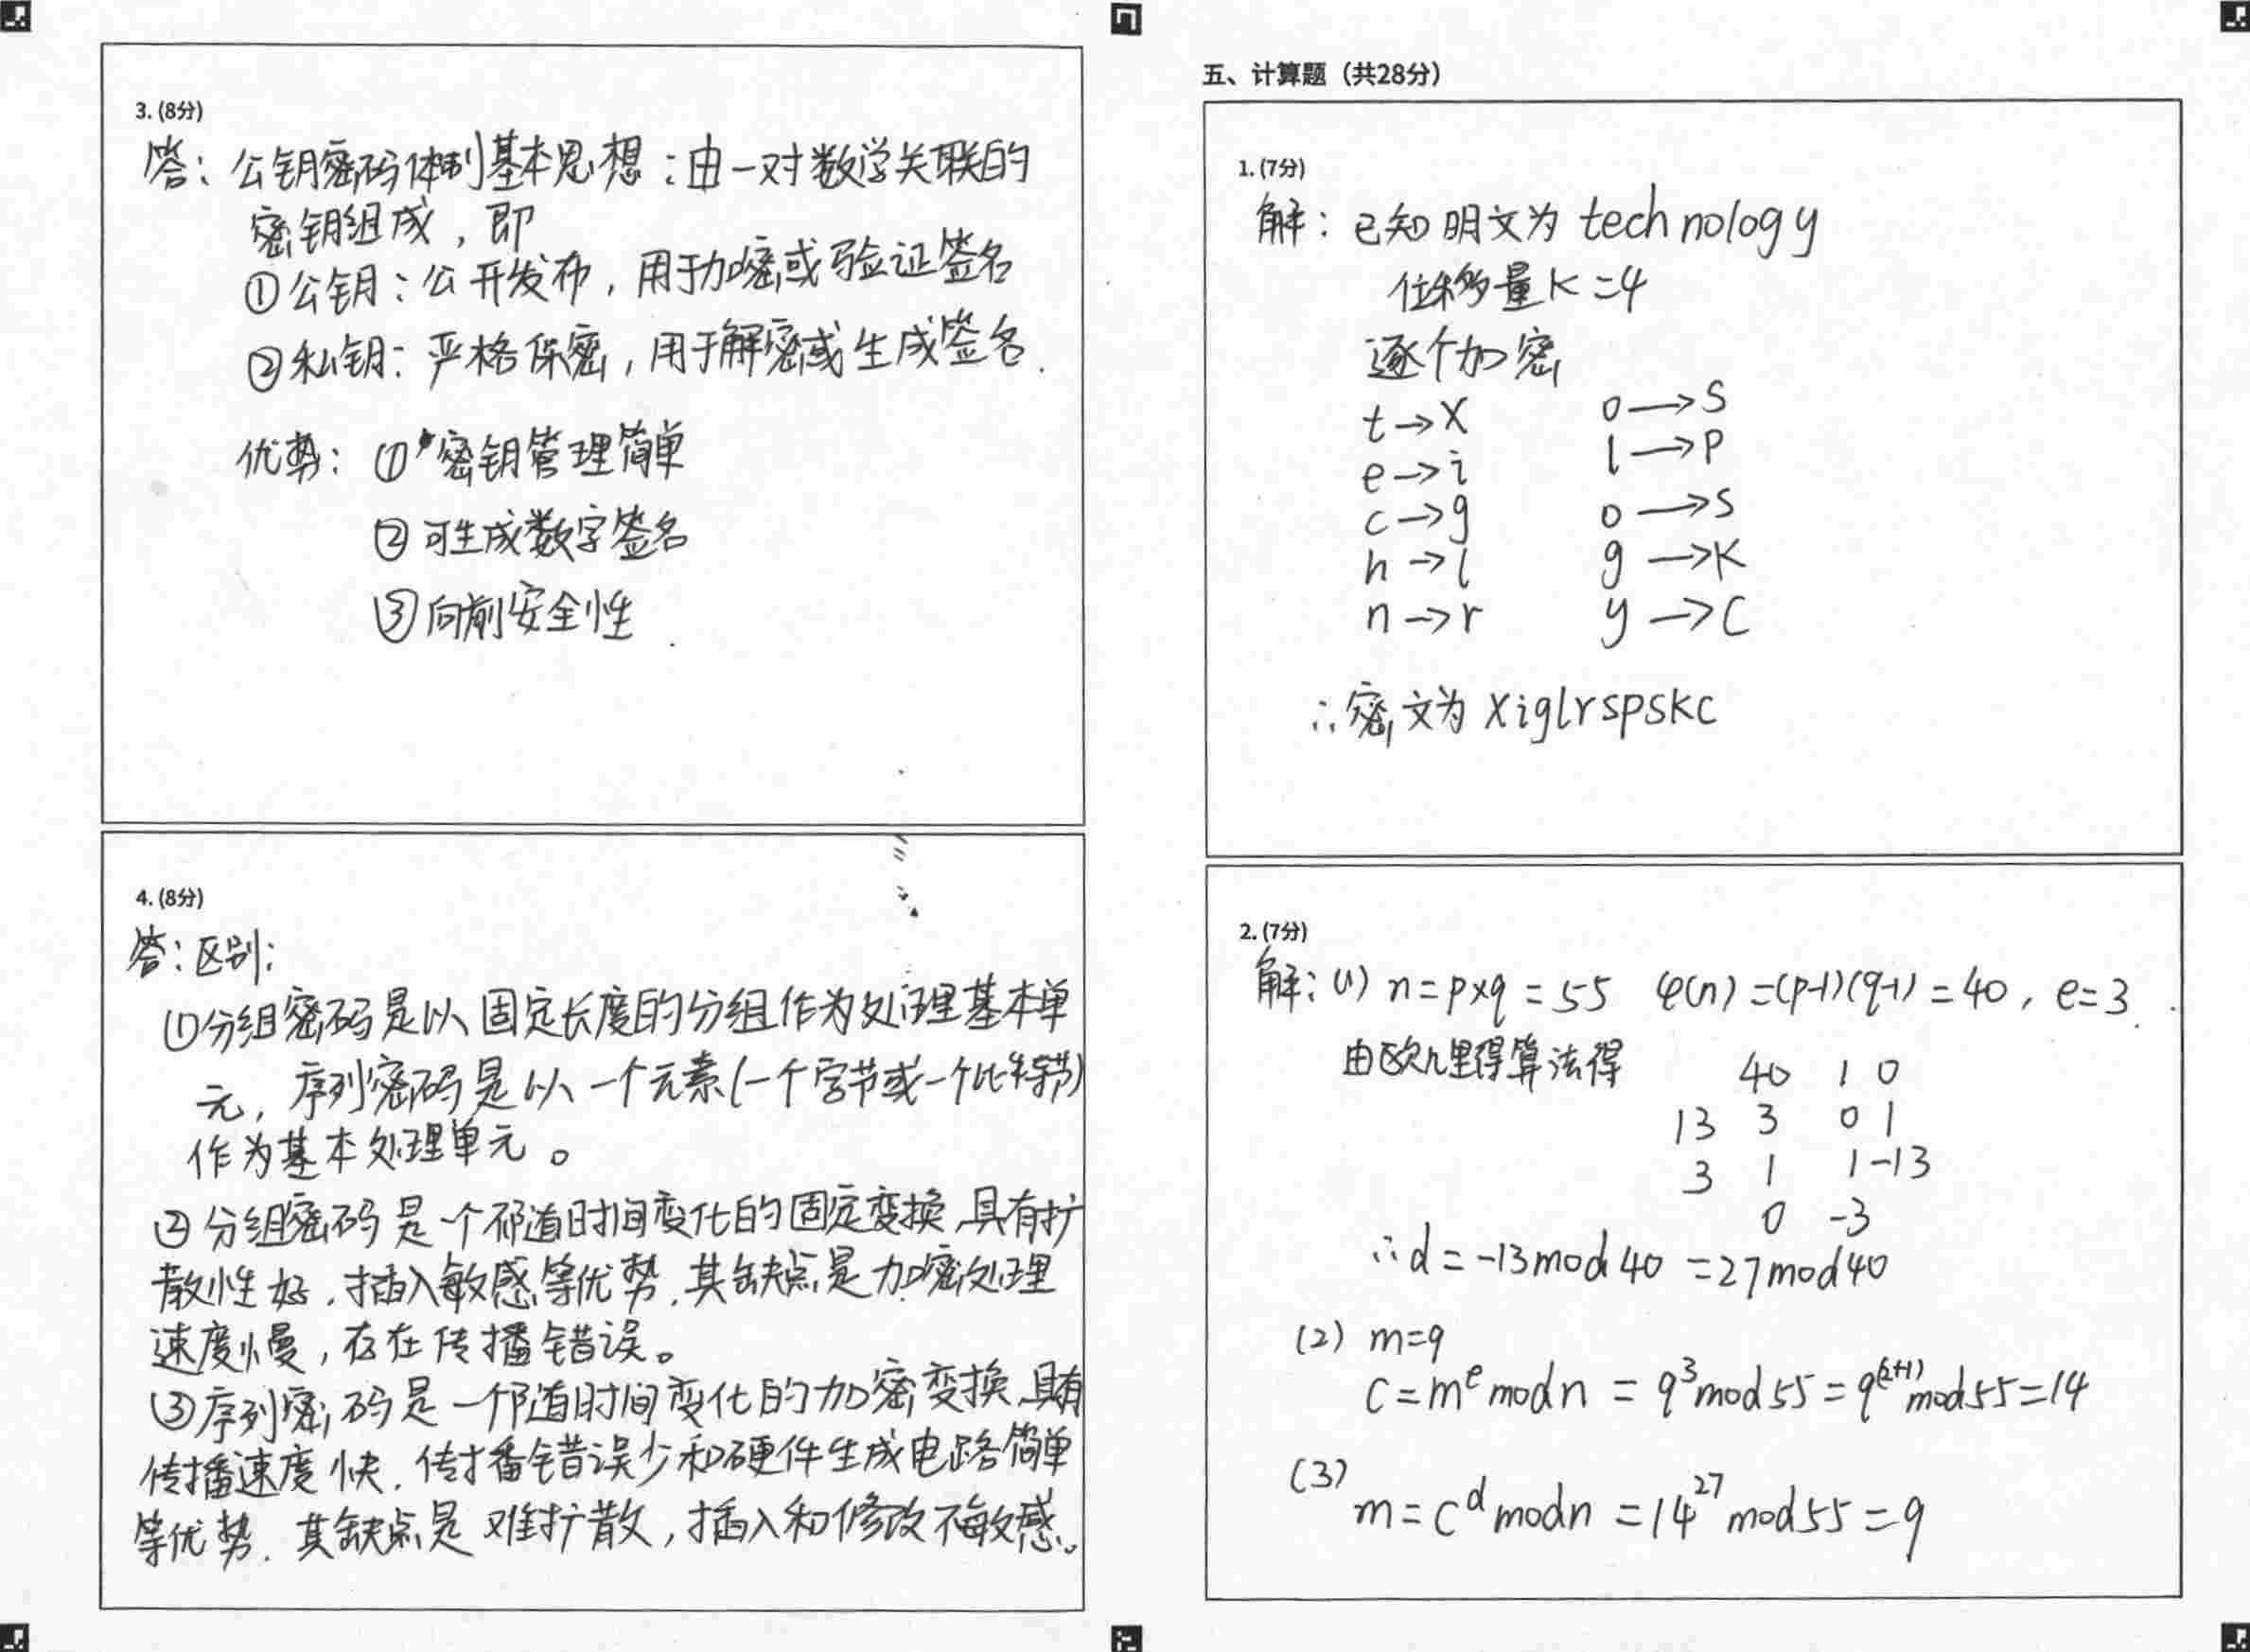 3. (8分)
答：公钥密码体制基本思想：由一对数学关联的
密钥组成，即
①公钥：公开发布，用于加密或验证签名
②私钥：严格保密，用于解密或生成签名.
优势：①密钥管理简单
②可生成数字签名
③向前安全性.
4. (8分)
答：区别：
①分组密码是以固定长度的分组作为处理基本单
元，序列密码是以一个元素(一个字节或一个比特)
作为基本处理单元。
②分组密码是一个不随时间变化的固定变换,具有扩
散性好,插入敏感等优势,其缺点是加密处理
速度慢，存在传播错误。
③序列密码是一个随时间变化的加密变换,具有
传播速度快,传播错误少和硬件生成电路简单
等优势.其缺点是难扩散，插入和修改不敏感。
五、计算题（共28分）
1. (7分)
解：已知明文为 technology
位移量K=4
逐个加密
t→X o→S
e→i l→P
c→g o→S
h→l g→K
n→r y→C
∴密文为 XiglrSPSKC
2. (7分)
解：(1) n=p×q=55 φ(n)=(p-1)(q-1)=40，e=3.
由欧几里得算法得 40 1 0
13 3 0 1
3 1 1 -13
0 -3
∴d=-13mod40=27mod40
(2) m=9
C=m^e modn=9^3mod55=9^(2+1)mod55=14
(3) m=C^d modn=14^27mod55=9